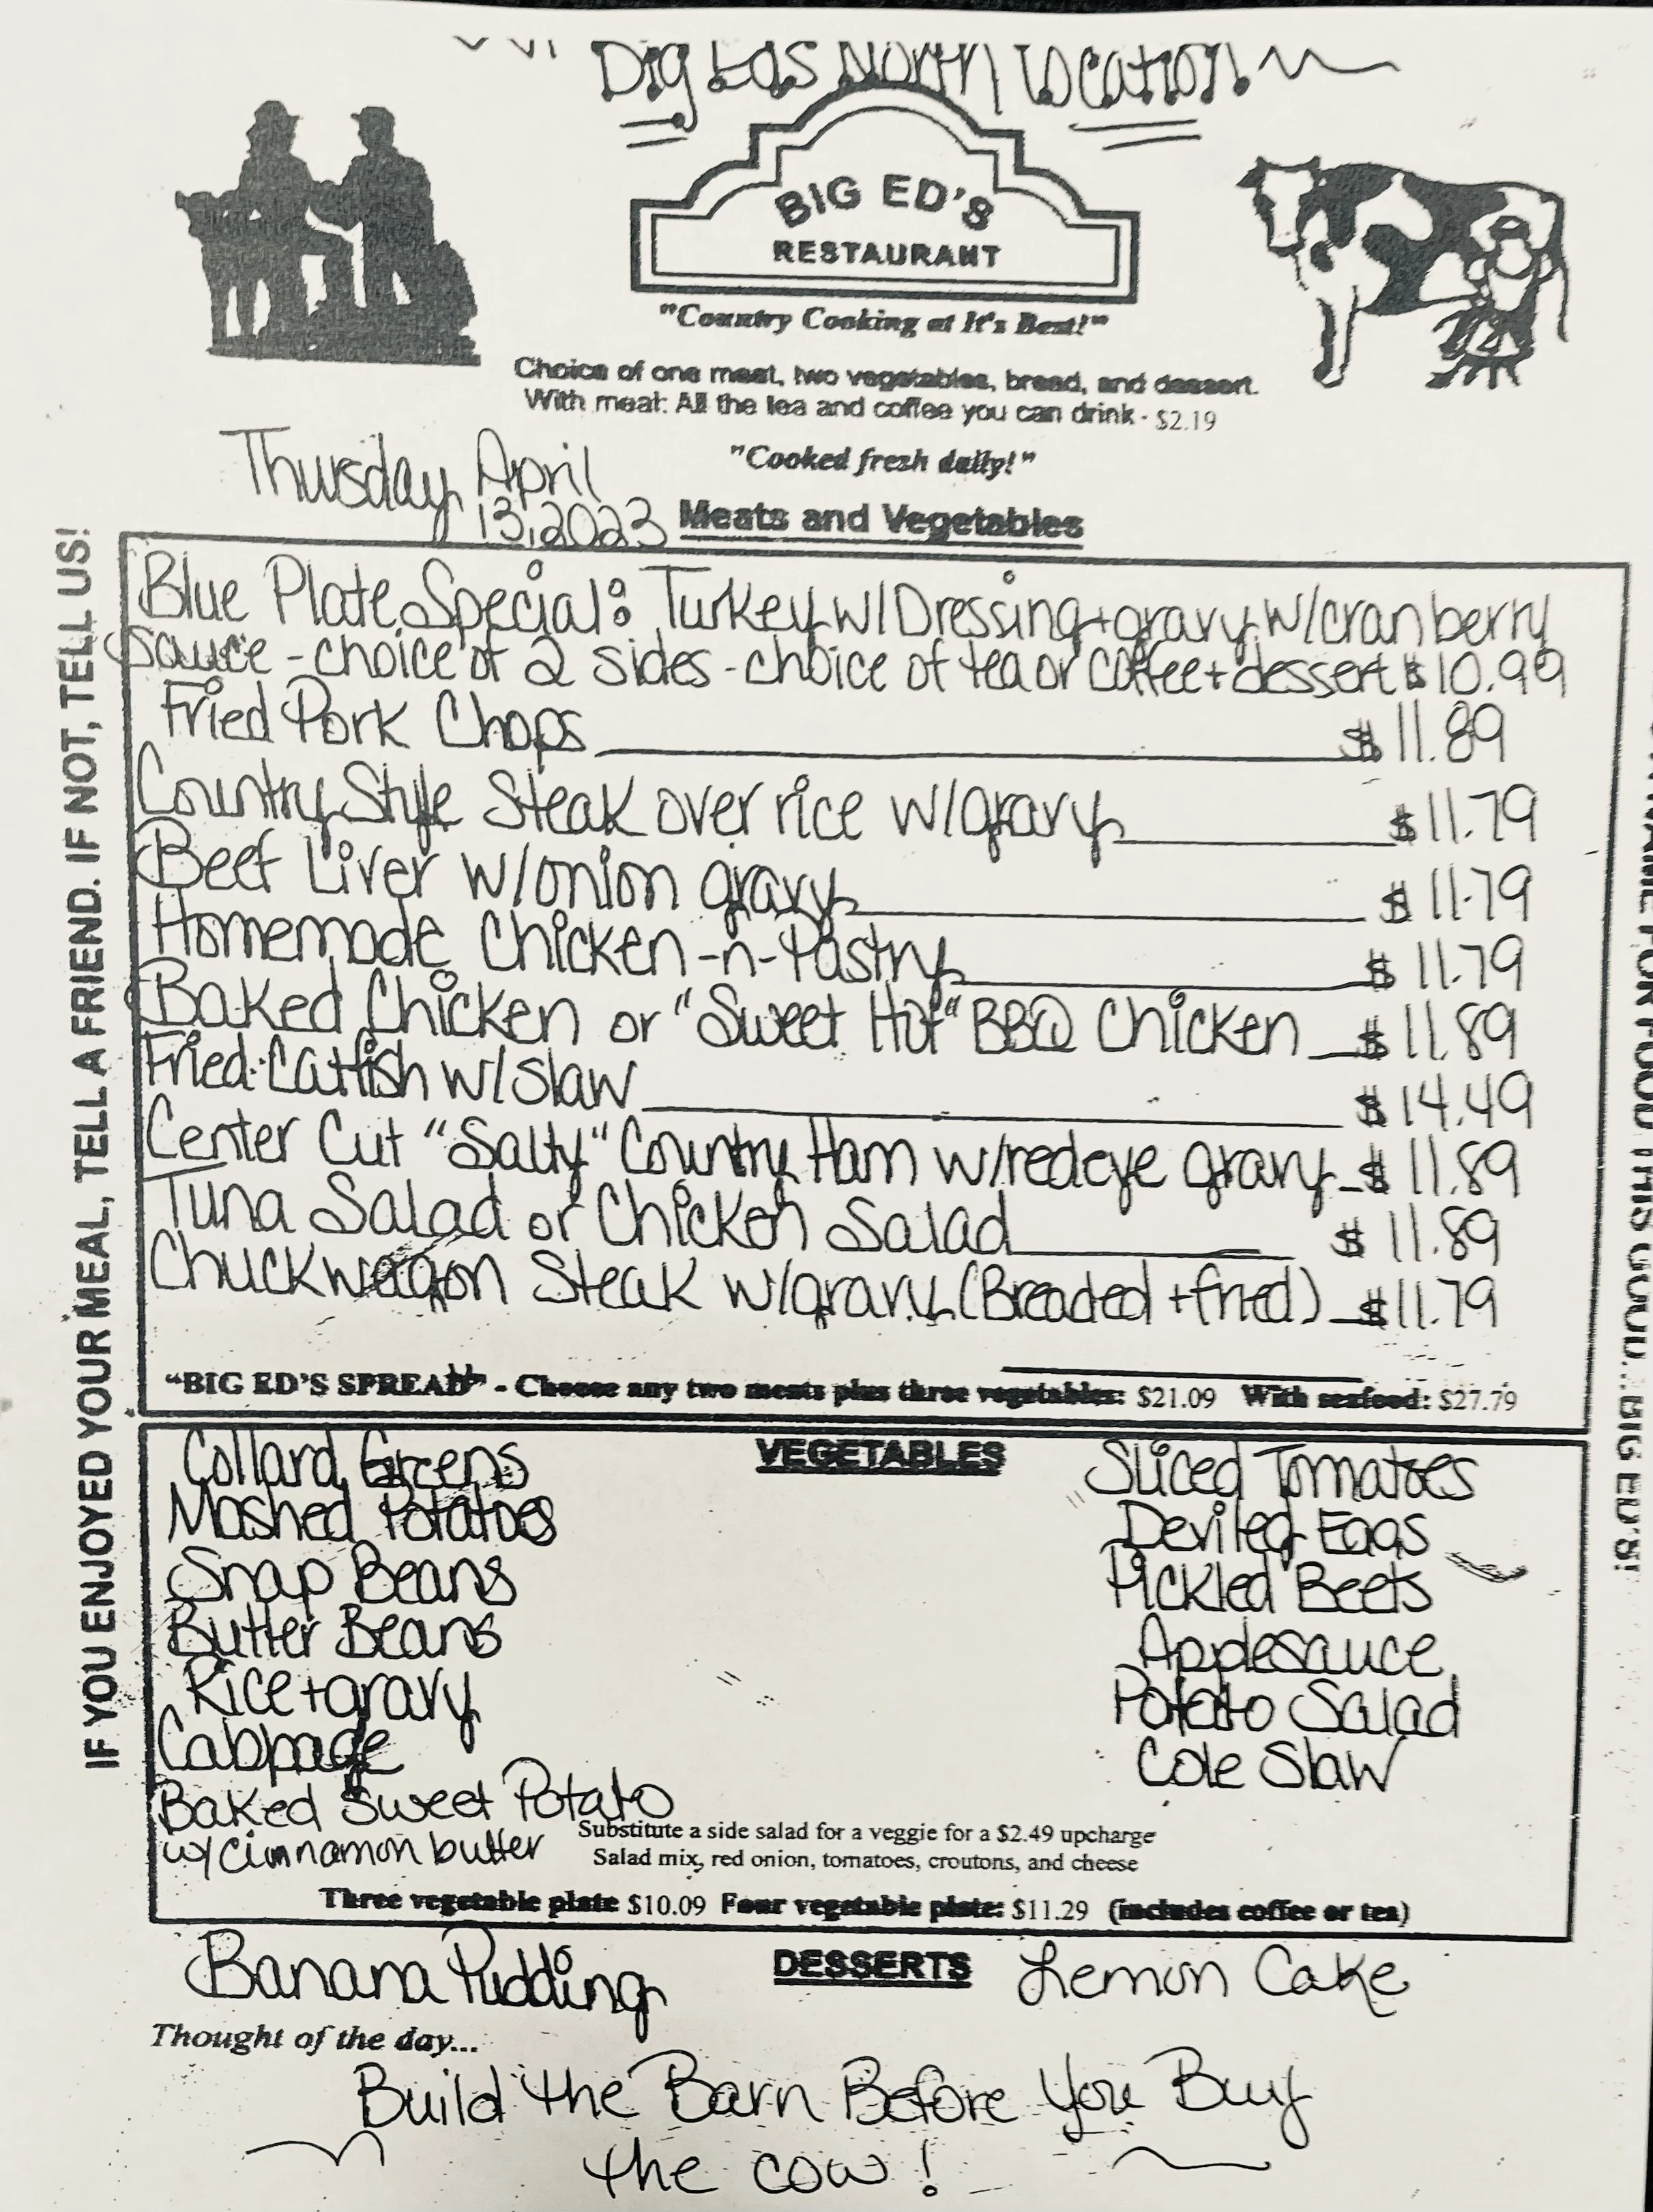 Big Eds North Location!
BIG ED'S
RESTAURANT
"Country Cooking at It's Best!"
Choice of one meat, two vegetables, bread, and dessert.
With meal: All the tea and coffee you can drink - $2.19
"Cooked fresh daily!"
Thursday, April
13, 2023
Meats and Vegetables
Blue Plate Special: Turkey w/Dressing+gravy w/cranberry
Sauce - choice of 2 sides - choice of tea or coffee + dessert $10.99
Fried Pork Chops $11.89
Country Style Steak over rice w/gravy $11.79
Beef Liver w/onion gravy $11.79
Homemade Chicken-n-Pastry $11.79
Baked Chicken or "Sweet Hot" BBQ Chicken $11.89
Fried Catfish w/slaw $14.49
Center Cut "Salty" Country Ham w/redeye gravy $11.89
Tuna Salad or Chicken Salad $11.89
Chuckwagon Steak w/gravy (Breaded + fried) $11.79
"BIG ED'S SPREAD" - Choose any two meats plus three vegetables: $21.09 With seafood: $27.79
VEGETABLES
Collard Greens
Mashed Potatoes
Snap Beans
Butter Beans
Rice + gravy
Cabbage
Baked Sweet Potato
w/cinnamon butter
Sliced Tomatoes
Deviled Eggs
Pickled Beets
Applesauce
Potato Salad
Cole Slaw
Substitute a side salad for a veggie for a $2.49 upcharge
Salad mix, red onion, tomatoes, croutons, and cheese
Three vegetable plate $10.09 Four vegetable plate: $11.29 (includes coffee or tea)
DESSERTS
Banana Pudding
Lemon Cake
Thought of the day...
Build the Barn Before You Buy
the cow!
IF YOU ENJOYED YOUR MEAL, TELL A FRIEND. IF NOT, TELL US!
NAME FOR FOOD THIS GOOD... BIG ED'S!